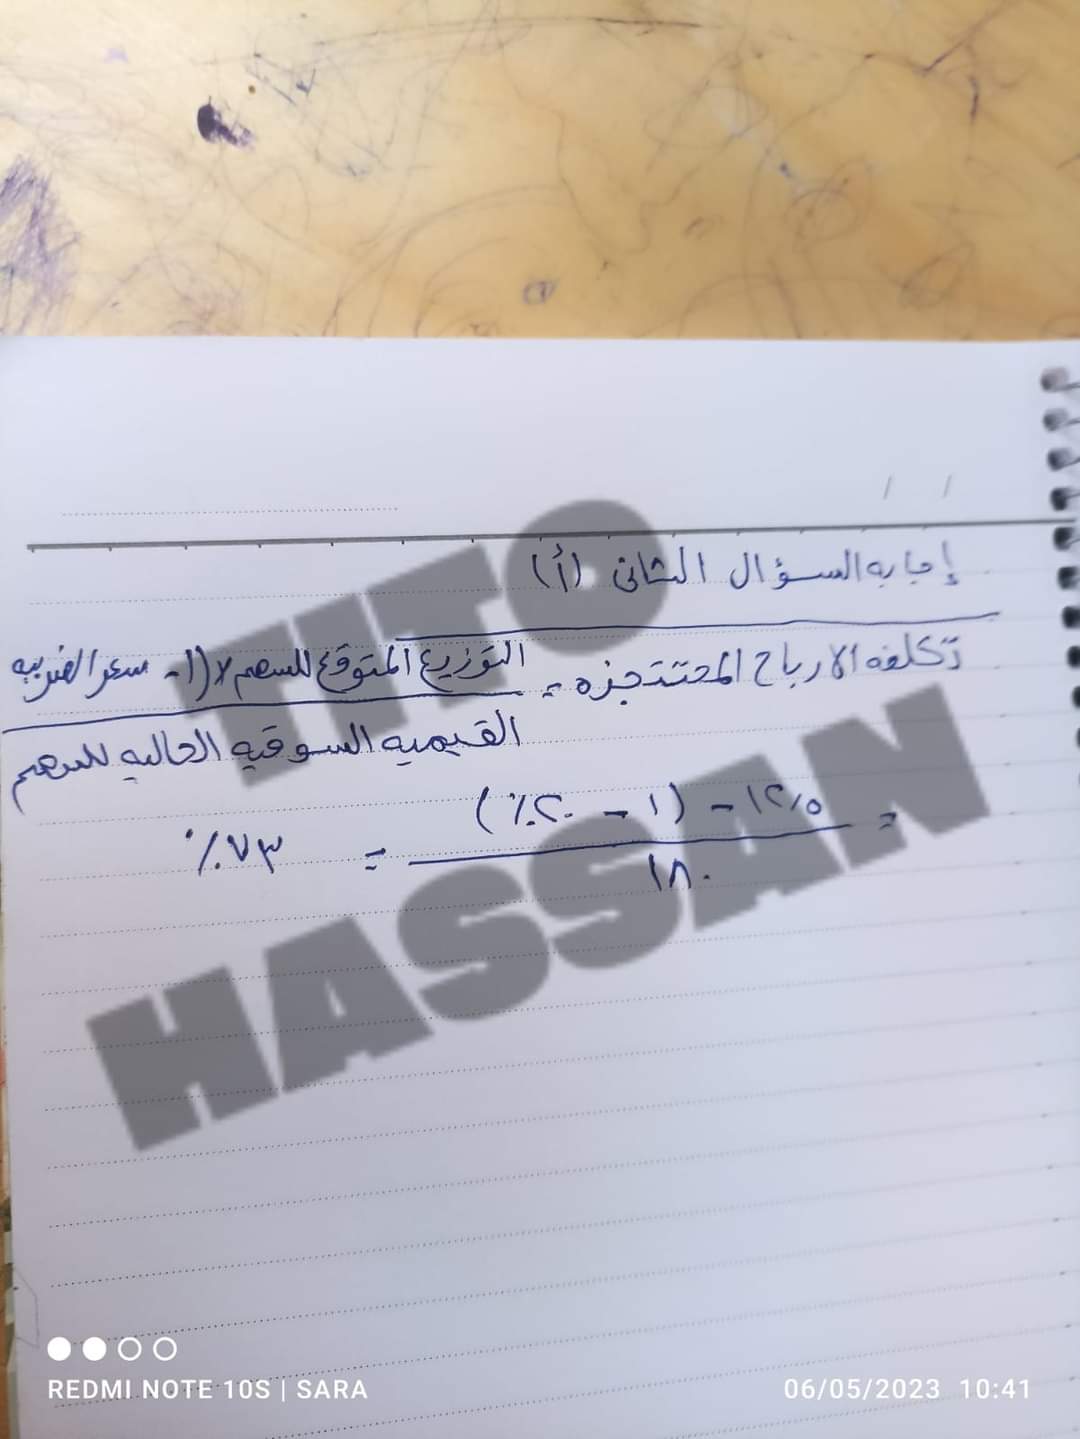 / /
إجابه السؤال الثانى (أ)
تكلفه الارباح المحتجزه = التوزيع المتوقع للسهم x (١ - سعر الضريبه
القيميه السوقيه الحاليه للسهم
= ١٢٫٥ - (١ - ٢٠٪)
١٨٠
= ٧٣٪
TITO
HASSAN
REDMI NOTE 10S | SARA
06/05/2023 10:41